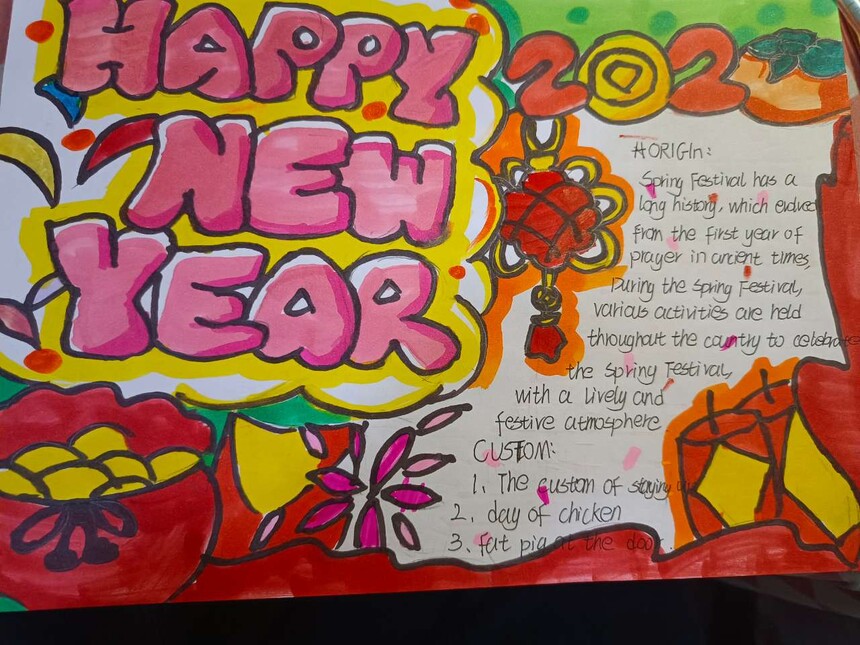 HAPPY
NEW
YEAR
202
#ORIGIn:
Spring Festival has a
long history, which evolved
from the first year of
prayer in ancient times,
During the spring Festival,
various activities are held
throughout the country to celebrate
the spring Festival,
with a lively and
festive atmosphere
CUSTOM:
1. The custom of staying up
2. day of chicken
3. fat pig at the door.